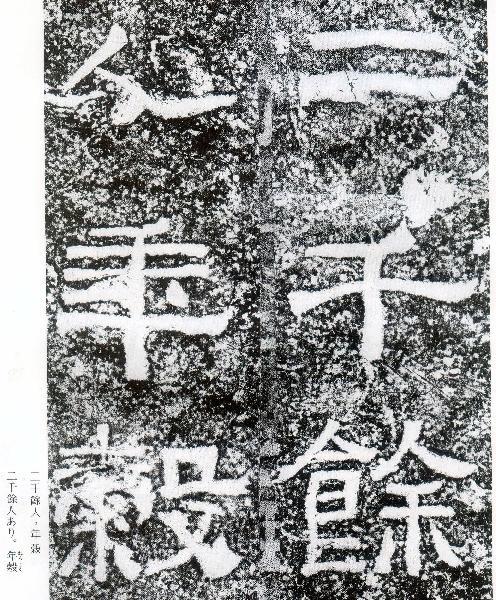 二千餘
人年穀
二千餘人,年穀
二千餘人あり。年穀